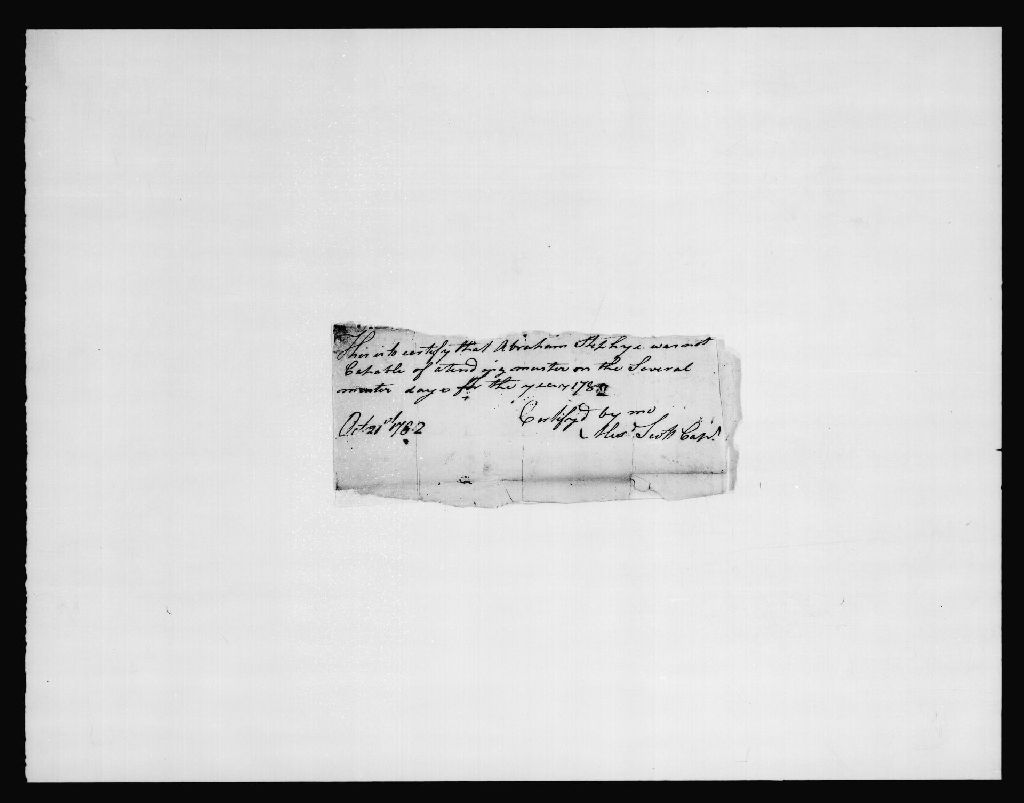 This is to certify that Abraham was not
Capable of atending muster on the Several
muster days for the year 178
Certifyd by me
Octr 21st 1782
Alexr Scott Capt.